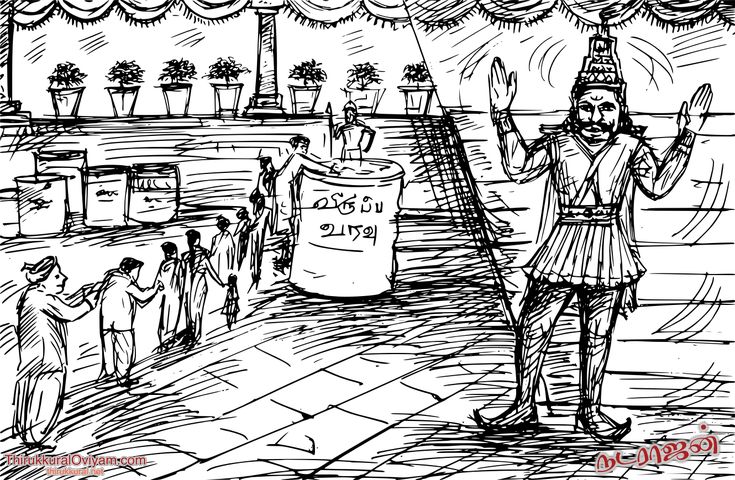 விருப்ப
வரவு
ThirukkuralOviyam.com
thirukkural.net
நடராஜன்